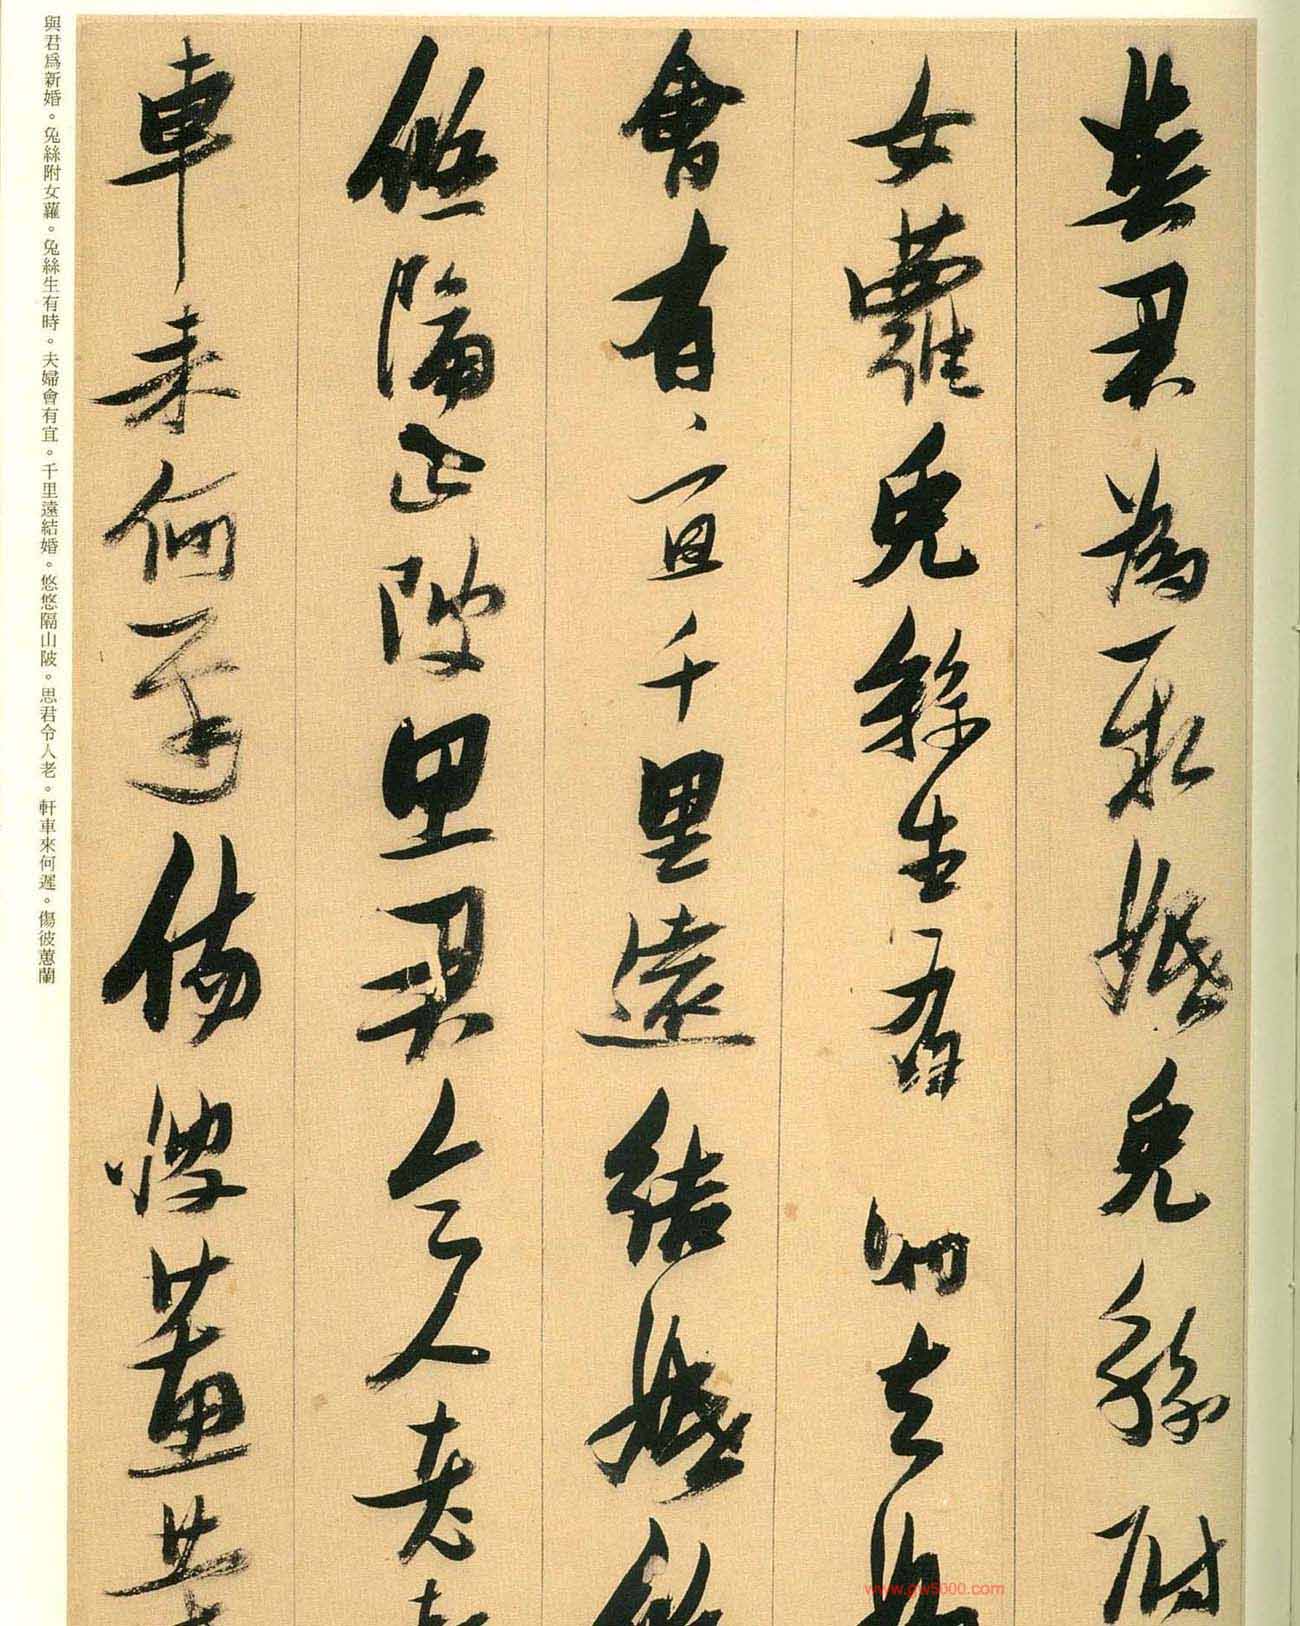 與君為新婚兔絲附
女蘿兔絲生有時夫婦
會有宜千里遠結婚悠
悠隔山陂思君令人老軒
車來何遲傷彼蕙蘭
與君爲新婚。兔絲附女蘿。兔絲生有時。夫婦會有宜。千里遠結婚。悠悠隔山陂。思君令人老。軒車來何遲。傷彼蕙蘭
www.gw5000.com